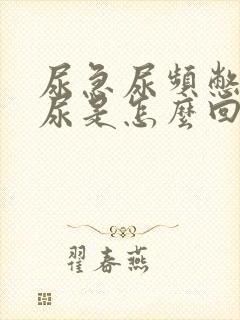 尿急尿頻憋
尿是怎麼回
翟春燕